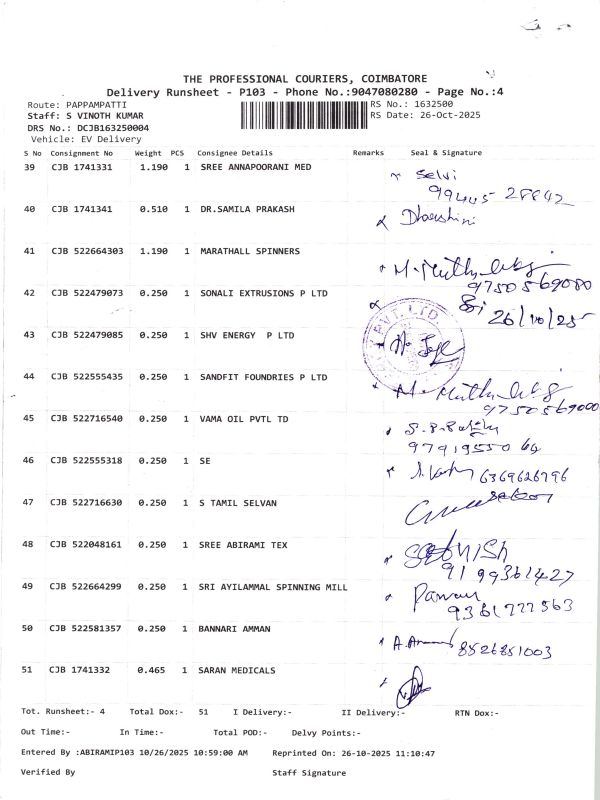 THE PROFESSIONAL COURIERS, COIMBATORE
Delivery Runsheet - P103 - Phone No.:9047080280 - Page No.:4
Route: PAPPAMPATTI RS No.: 1632500
Staff: S VINOTH KUMAR RS Date: 26-Oct-2025
DRS No.: DCJB163250004
Vehicle: EV Delivery
S No Consignment No Weight PCS Consignee Details Remarks Seal & Signature
39 CJB 1741331 1.190 1 SREE ANNAPOORANI MED Selvi
99445 28842
40 CJB 1741341 0.510 1 DR.SAMILA PRAKASH Dharshini
41 CJB 522664303 1.190 1 MARATHALL SPINNERS
9750569080
42 CJB 522479073 0.250 1 SONALI EXTRUSIONS P LTD
26/10/25
PVT. LTD.
43 CJB 522479085 0.250 1 SHV ENERGY P LTD
44 CJB 522555435 0.250 1 SANDFIT FOUNDRIES P LTD
9750569000
45 CJB 522716540 0.250 1 VAMA OIL PVTL TD
46 CJB 522555318 0.250 1 SE 6369626796
47 CJB 522716630 0.250 1 S TAMIL SELVAN
48 CJB 522048161 0.250 1 SREE ABIRAMI TEX
91 99361427
49 CJB 522664299 0.250 1 SRI AYILAMMAL SPINNING MILL
9361777563
50 CJB 522581357 0.250 1 BANNARI AMMAN 8526851003
51 CJB 1741332 0.465 1 SARAN MEDICALS
Tot. Runsheet:- 4 Total Dox:- 51 I Delivery:- II Delivery:- RTN Dox:-
Out Time:- In Time:- Total POD:- Delvy Points:-
Entered By :ABIRAMIP103 10/26/2025 10:59:00 AM Reprinted On: 26-10-2025 11:10:47
Verified By Staff Signature